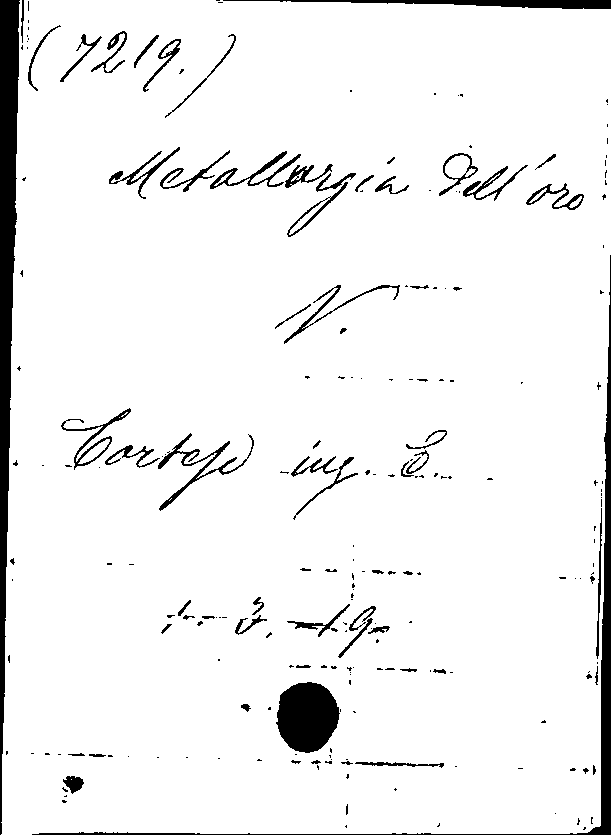 (7219.)
Metallurgia dell'oro
V.
Cortese ing. E.
1. 3. 19.